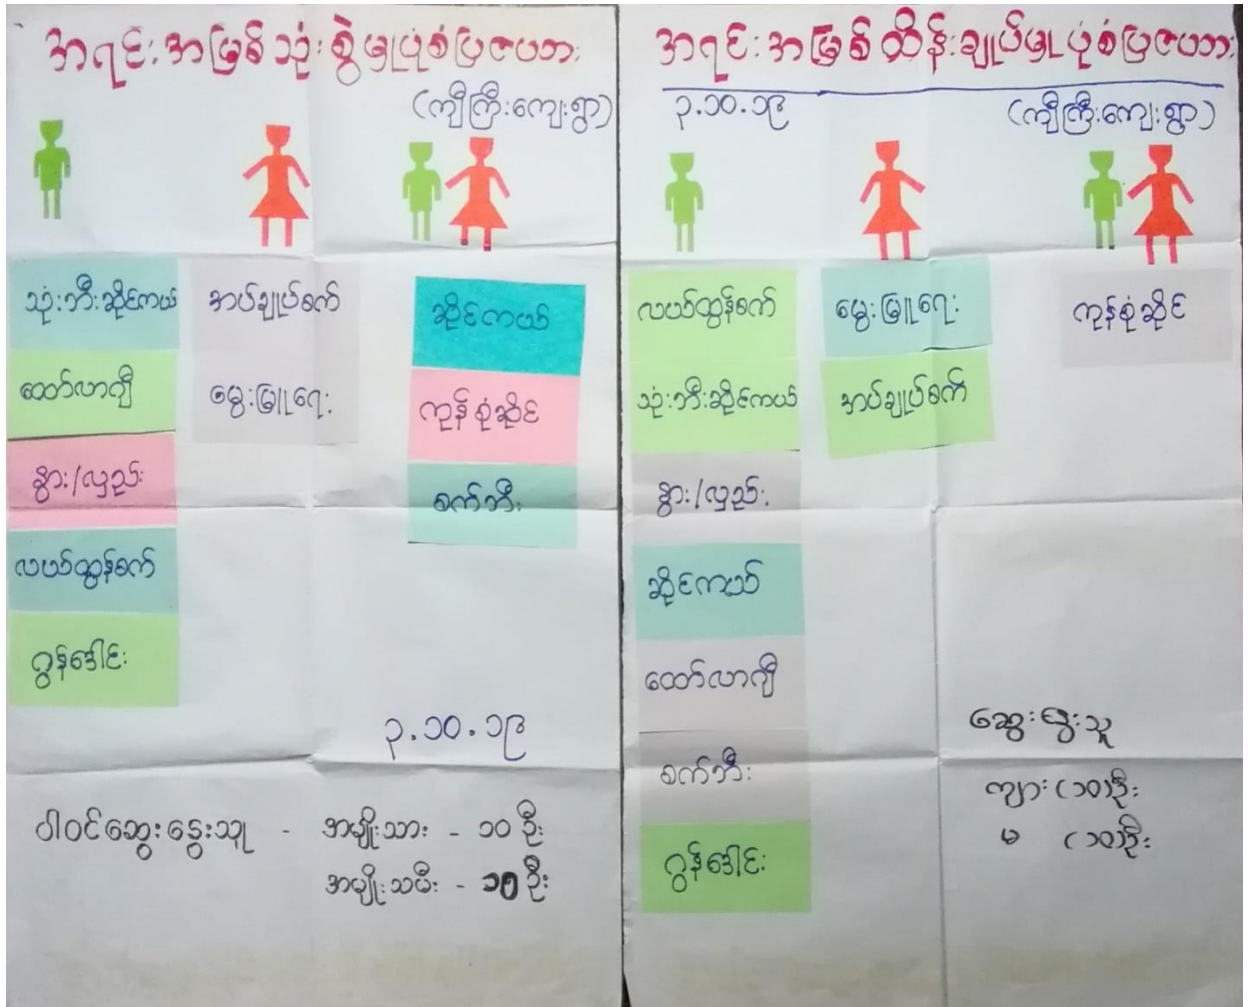 အရင်းအမြစ်သုံးစွဲမှုပုံစံပြဇယား
(ကျီကြီးကျေးရွာ)
သုံးဘီးဆိုင်ကယ်
ထော်လာဂျီ
နွား/လှည်း
လယ်ထွန်စက်
ဂွန်ဒေါင်း
အပ်ချုပ်စက်
မွေးမြူရေး
ဆိုင်ကယ်
ကုန်စုံဆိုင်
စက်ဘီး
၃.၁၀.၁၉
ပါဝင်ဆွေးနွေးသူ - အမျိုးသား - ၁၀ ဦး
အမျိုးသမီး - ၁၅ ဦး
အရင်းအမြစ်ထိန်းချုပ်မှုပုံစံပြဇယား
၃.၁၀.၁၉
(ကျီကြီးကျေးရွာ)
လယ်ထွန်စက်
သုံးဘီးဆိုင်ကယ်
နွား/လှည်း
ဆိုင်ကယ်
ထော်လာဂျီ
စက်ဘီး
ဂွန်ဒေါင်း
မွေးမြူရေး
အပ်ချုပ်စက်
ကုန်စုံဆိုင်
ဆွေးနွေးသူ
ကျား (၁၀)ဦး
မ (၁၀)ဦး